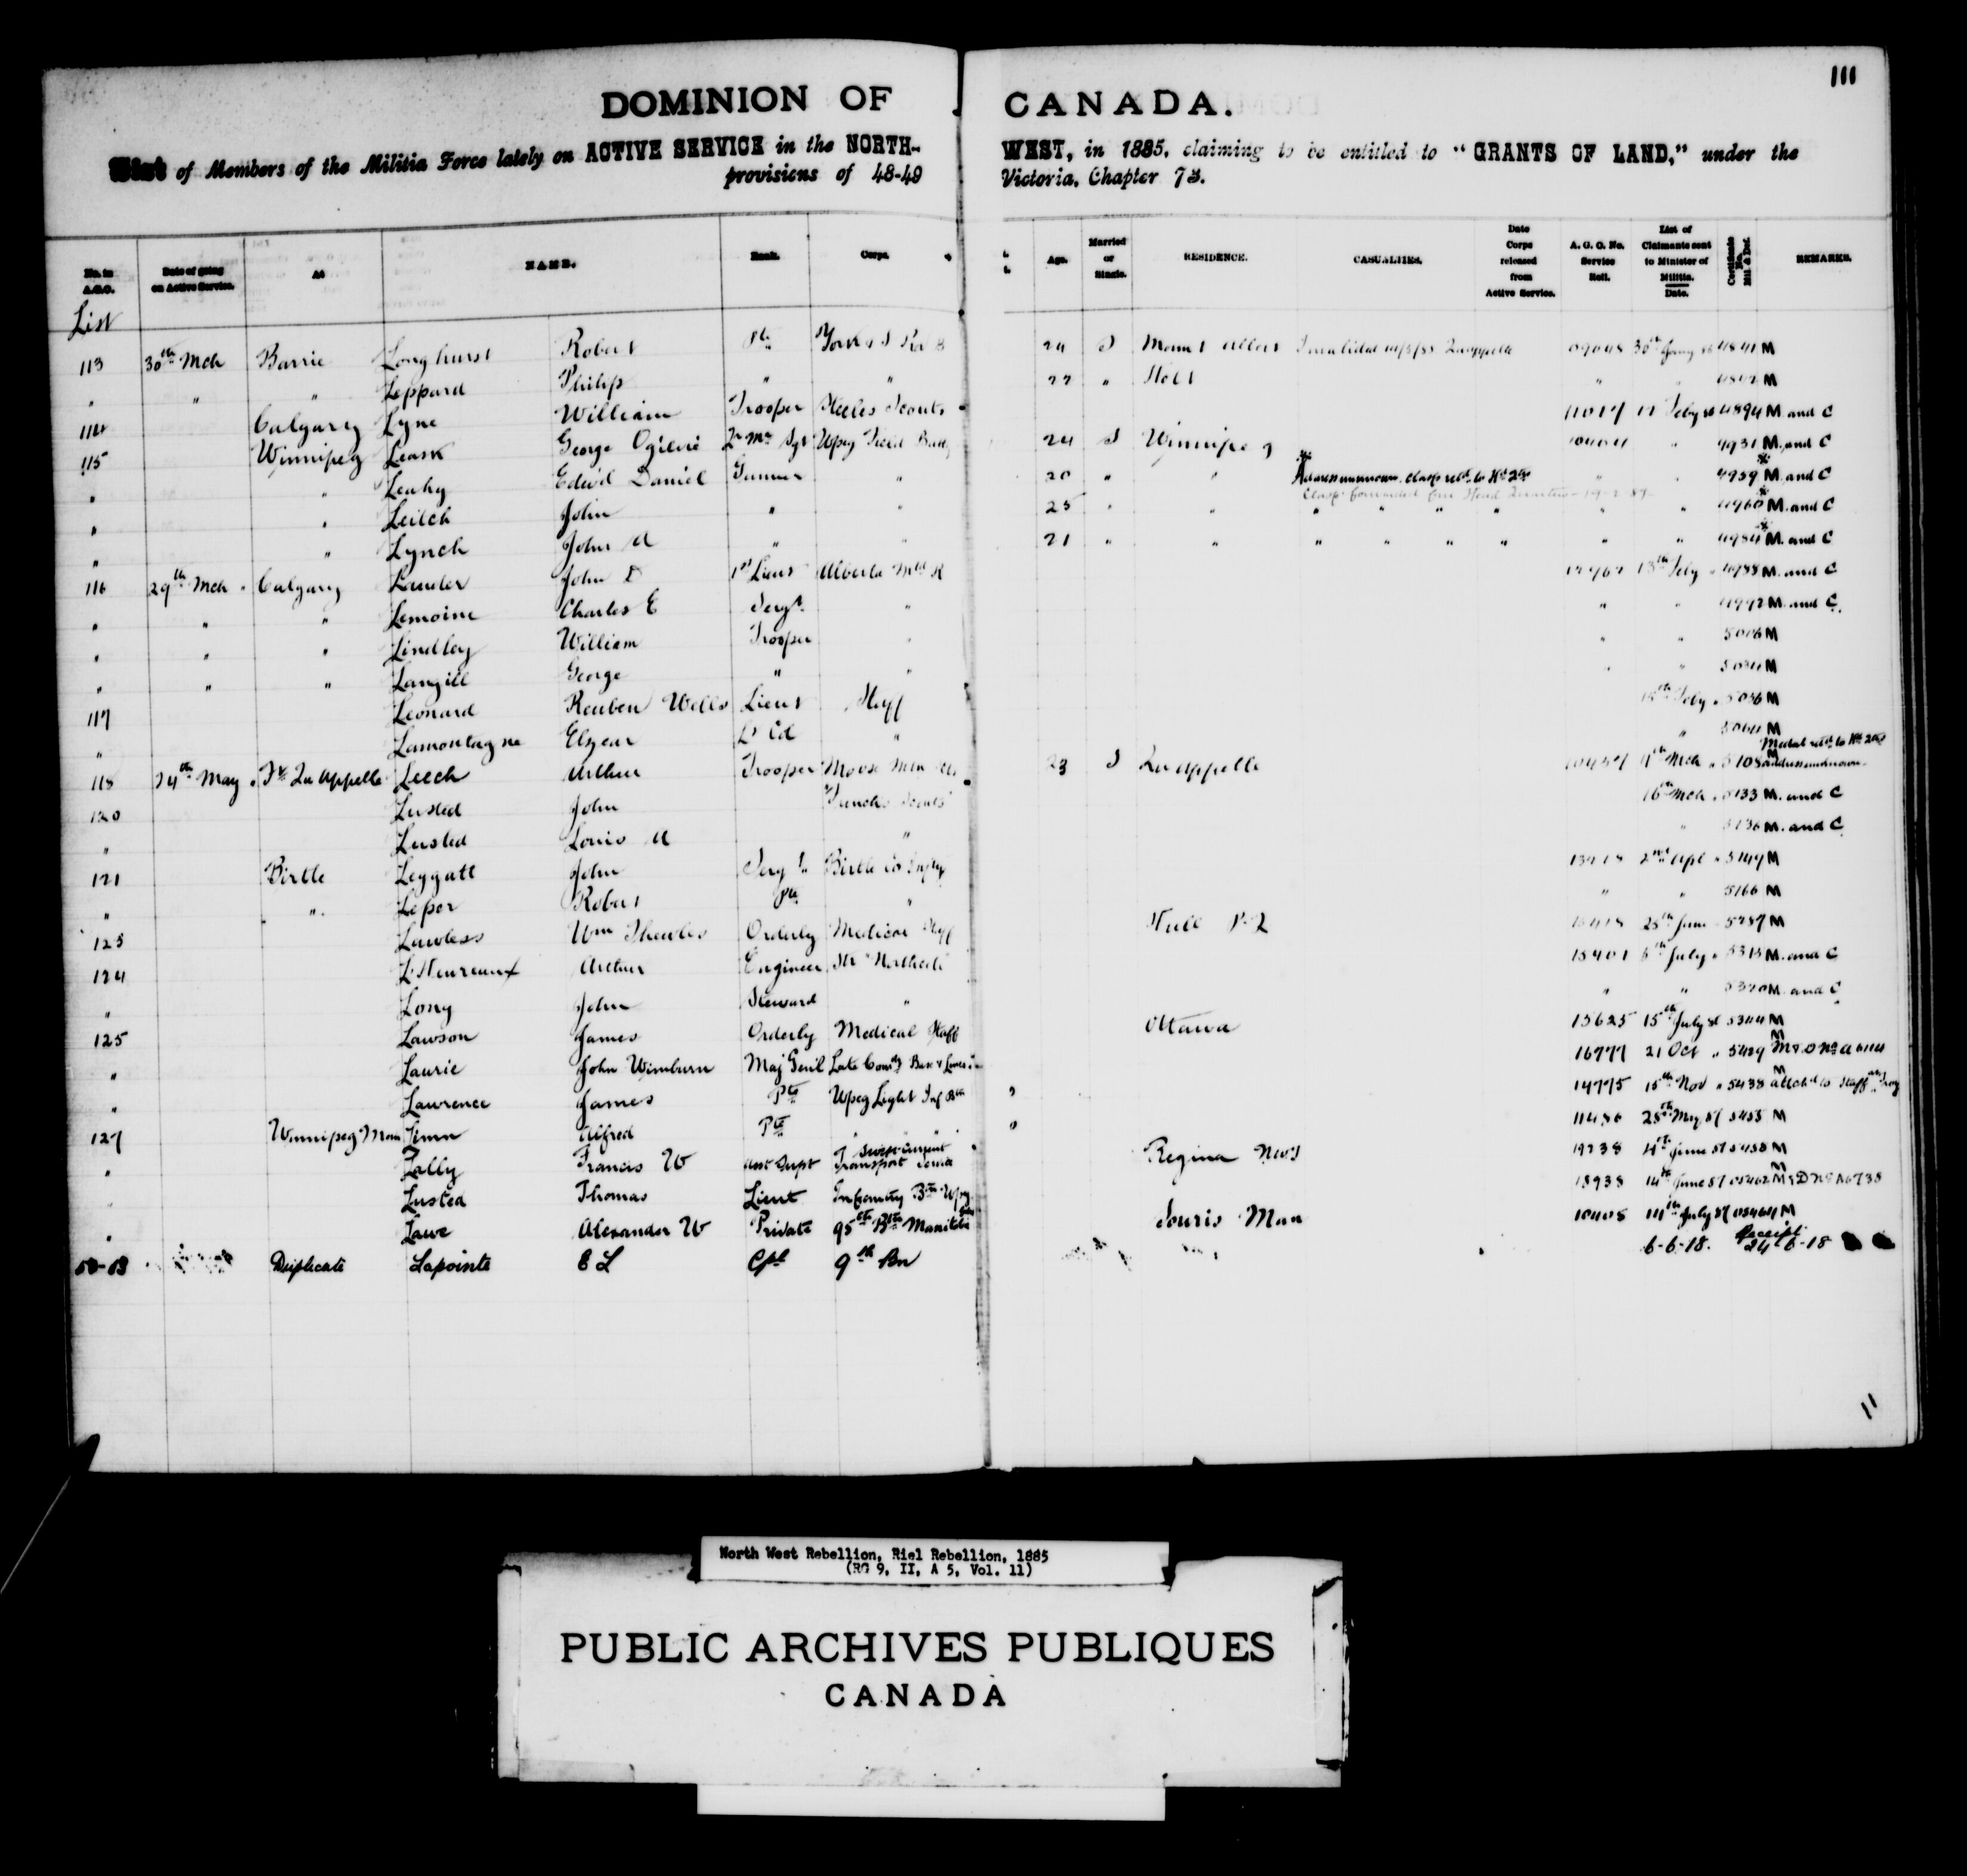 111
DOMINION OF CANADA.
List of Members of the Militia Force lately on ACTIVE SERVICE in the NORTH-WEST, in 1885, claiming to be entitled to "GRANTS OF LAND," under the
provisions of 48-49 Victoria, Chapter 73.
No. in A.G.O. Date of going on Active Service. At NAME. Rank. Corps. Age. Married or Single. RESIDENCE. CASUALTIES. Date Corps released from Active Service. A. G. O. No. Service Roll. List of Claimants sent to Minister of Militia. Date. Certificate No. Mil & Def. REMARKS.
List
113 30th Mch Barrie Longhurst Robert Pte York & S 24 S Mount Albert Invalided Quappelle 30th 4841 M
" " " Leppard Philip " " 22 " Holt " " M
114 Calgary Lyne William Trooper Steeles Scouts 4894 M and C
115 Winnipeg Leask George Ogilvie Qr Mr Sgt Wpeg Field Batty 24 S Winnipeg " 4931 M. and C
" " Leahy Edwd Daniel Gunner " 20 " " Address unknown. Clasp retd. to Hd 2rs " " 4959 M and C
Clasp forwarded
" " Leitch John " " 25 " " " " " " " " 4960 M. and C
" " Lynch John A " " 21 " " " " " " " " 4984 M. and C
116 29th Mch Calgary Lauder John D 1st Lieut Alberta Mtd R 13th Feby " 4988 M. and C
" " " Lemoine Charles E Sergt " " " 4992 M. and C.
" " " Lindley William Trooper " " " M
" " " Langill George " " " " M
117 Leonard Reuben Wells Lieut Staff Feby " 5056 M
" Lamontagne Elzear Lt Col " " M
118 24th May Ft Qu'appelle Leech Arthur Trooper Moose Mtn Scts 23 S Qu'appelle Mch " 5108 M Medal retd to Hd 2rs address unknown
120 Lusted John French's Scouts 16th Mch " 5133 M. and C
" Lusted Louis A " " 5136 M. and C
121 Birtle Leggatt John Sergt Birtle Co Infty 2nd Apl " 5149 M
" " Leper Robert Pte " " " 5166 M
123 Lawless Wm Thewles Orderly Medical Staff Hull P.Q 25th June M
124 L'Heureux Arthur Engineer Str "Northcote" 15401 5th July " 5315 M. and C
" Long John Steward " " " 5320 M. and C
125 Lawson James Orderly Medical Staff Ottawa 15625 15th July 86 5344 M
" Laurie John Wimburn Maj Genl Late Comdg Base & Lines 16777 21 Oct " 5429 M
" Lawrence James Pte Wpeg Light Inf Btn 14775 15th Nov " 5438 M attch'd to Staff
127 Winnipeg Man Linn Alfred Pte " " " 11456 25th May 87 5455 M
" Lally Francis W Asst Supt Transport Service Swift Current Regina NWT 19238 4th June 87 5458 M
" Lusted Thomas Lieut Infantry Btn Wpeg 18938 14th June 87 05462 M
" Lawe Alexander W Private 95th Btn Manitoba Souris Man 10405 14th July 87 05464 M
50-53 Duplicate Lapointe E L Cpl 9th Bn 6-6-18. Receipt 24-6-18
11
North West Rebellion, Riel Rebellion, 1885
(RG 9, II, A 5, Vol. 11)
PUBLIC ARCHIVES PUBLIQUES
CANADA